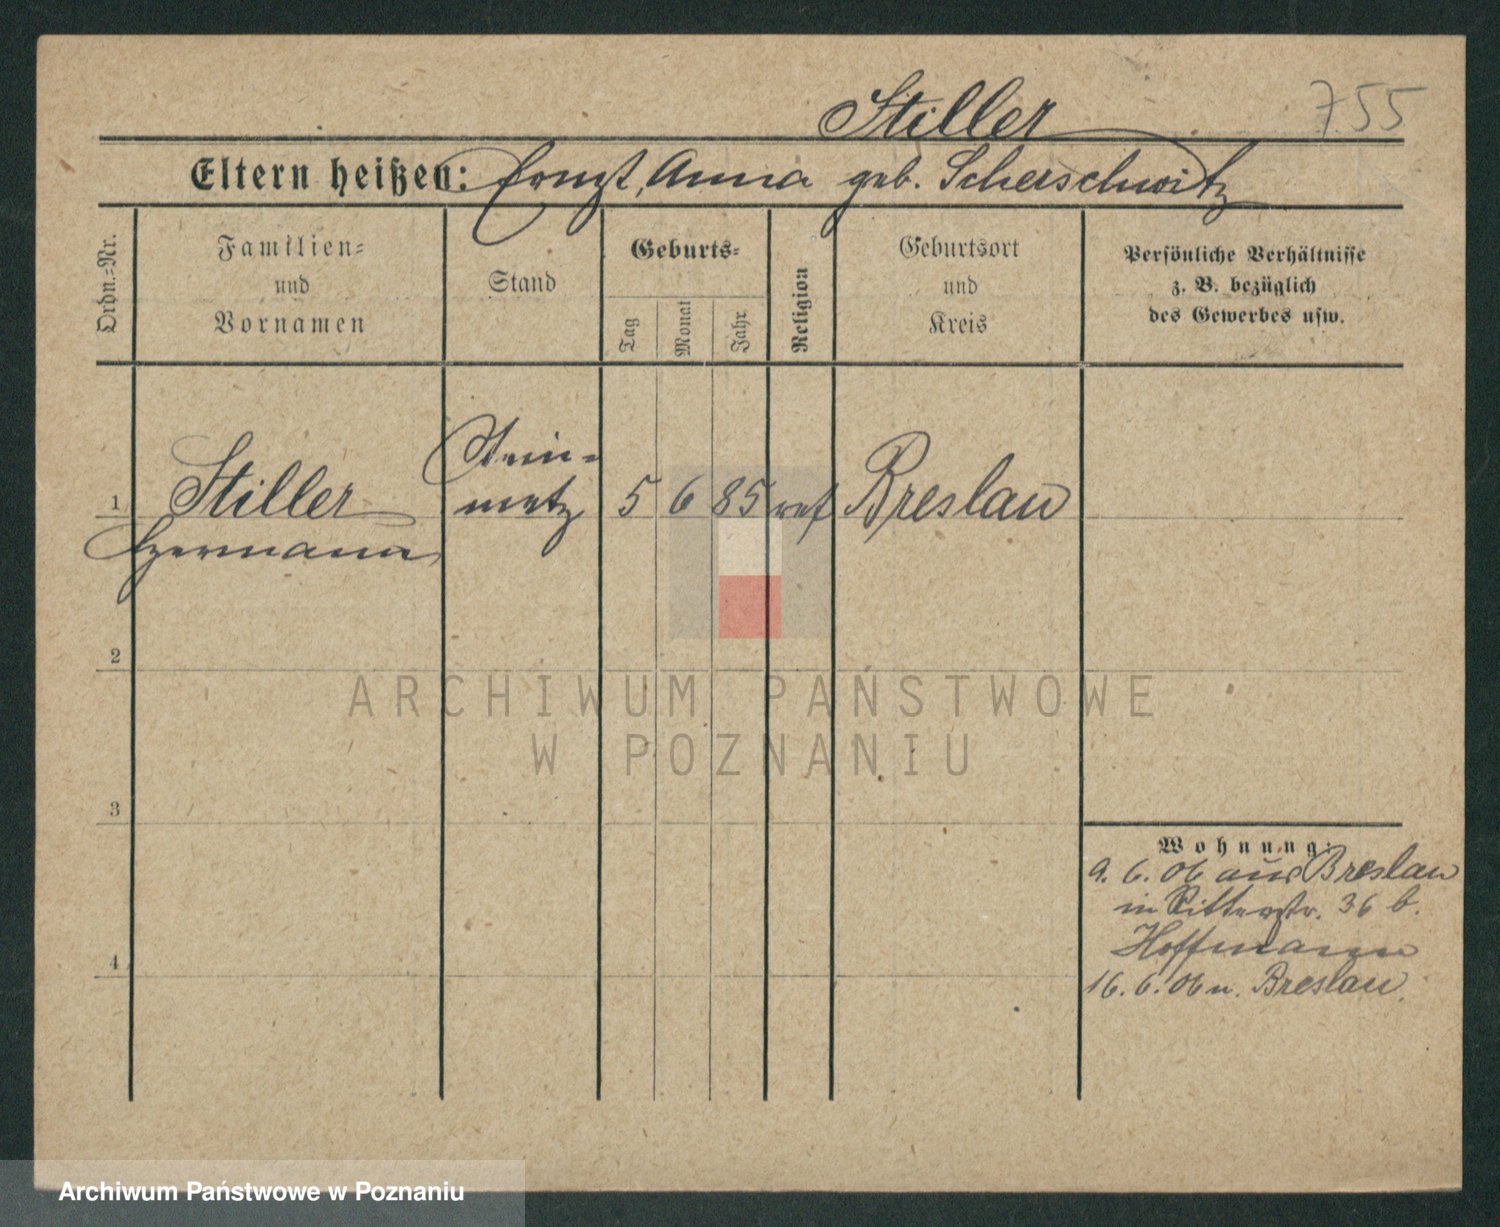 Stiller
755
Eltern heißen: Ernst, Anna geb. Scherschwitz
Ordn.-Nr.
Familien-
und
Vornamen
Stand
Geburts-
Tag
Monat
Jahr
Religion
Geburtsort
und
Kreis
Persönliche Verhältnisse
z. B. bezüglich
des Gewerbes usw.
1 Stiller
Hermann
Stein-
metz
5 6 85 ref Breslau
2
3
4
Wohnung:
9. 6. 06 aus Breslau
in Ritterstr. 36 b.
Hoffmann
16. 6. 06 n. Breslau.
ARCHIWUM PAŃSTWOWE
W POZNANIU
Archiwum Państwowe w Poznaniu